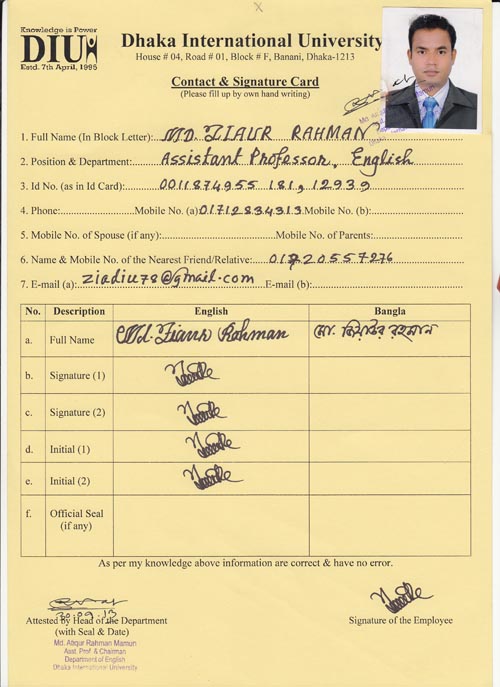 Knowledge is Power
DIU
Estd. 7th April, 1995
Dhaka International University
House # 04, Road # 01, Block # F, Banani, Dhaka-1213
Contact & Signature Card
(Please fill up by own hand writing)
1. Full Name (In Block Letter): MD. ZIAUR RAHMAN
2. Position & Department: Assistant Professor, English
3. Id No. (as in Id Card): 0011874955 181, 12939
4. Phone: Mobile No. (a) 01712834313 Mobile No. (b):
5. Mobile No. of Spouse (if any): Mobile No. of Parents:
6. Name & Mobile No. of the Nearest Friend/Relative: 01720557276
7. E-mail (a): ziadiu78@gmail.com E-mail (b):
No. Description English Bangla
a. Full Name Md. Ziaur Rahman মো. জিয়াউর রহমান
b. Signature (1)
c. Signature (2)
d. Initial (1)
e. Initial (2)
f. Official Seal
(if any)
As per my knowledge above information are correct & have no error.
30.09.13
Attested by Head of the Department
(with Seal & Date)
Signature of the Employee
Md. Atiqur Rahman Mamun
Asst. Prof. & Chairman
Department of English
Dhaka International University